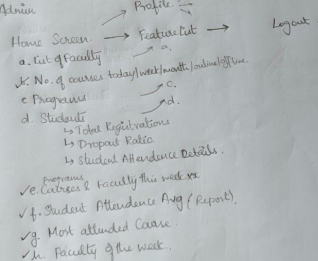 Admin
Profile
Home Screen → Feature List → Logout
a. List of Faculty
a.
b. No. of courses today/week/month/online/offline.
c. Programs
c.
d. Students
d.
↳ Total Registrations
↳ Dropout Ratio
↳ Student Attendence Details.
Programs
✓ e. & Faculty this week
✓ f. Student Attendence Avg (Report).
✓ g. Most attended Course.
✓ h. Faculty of the week.